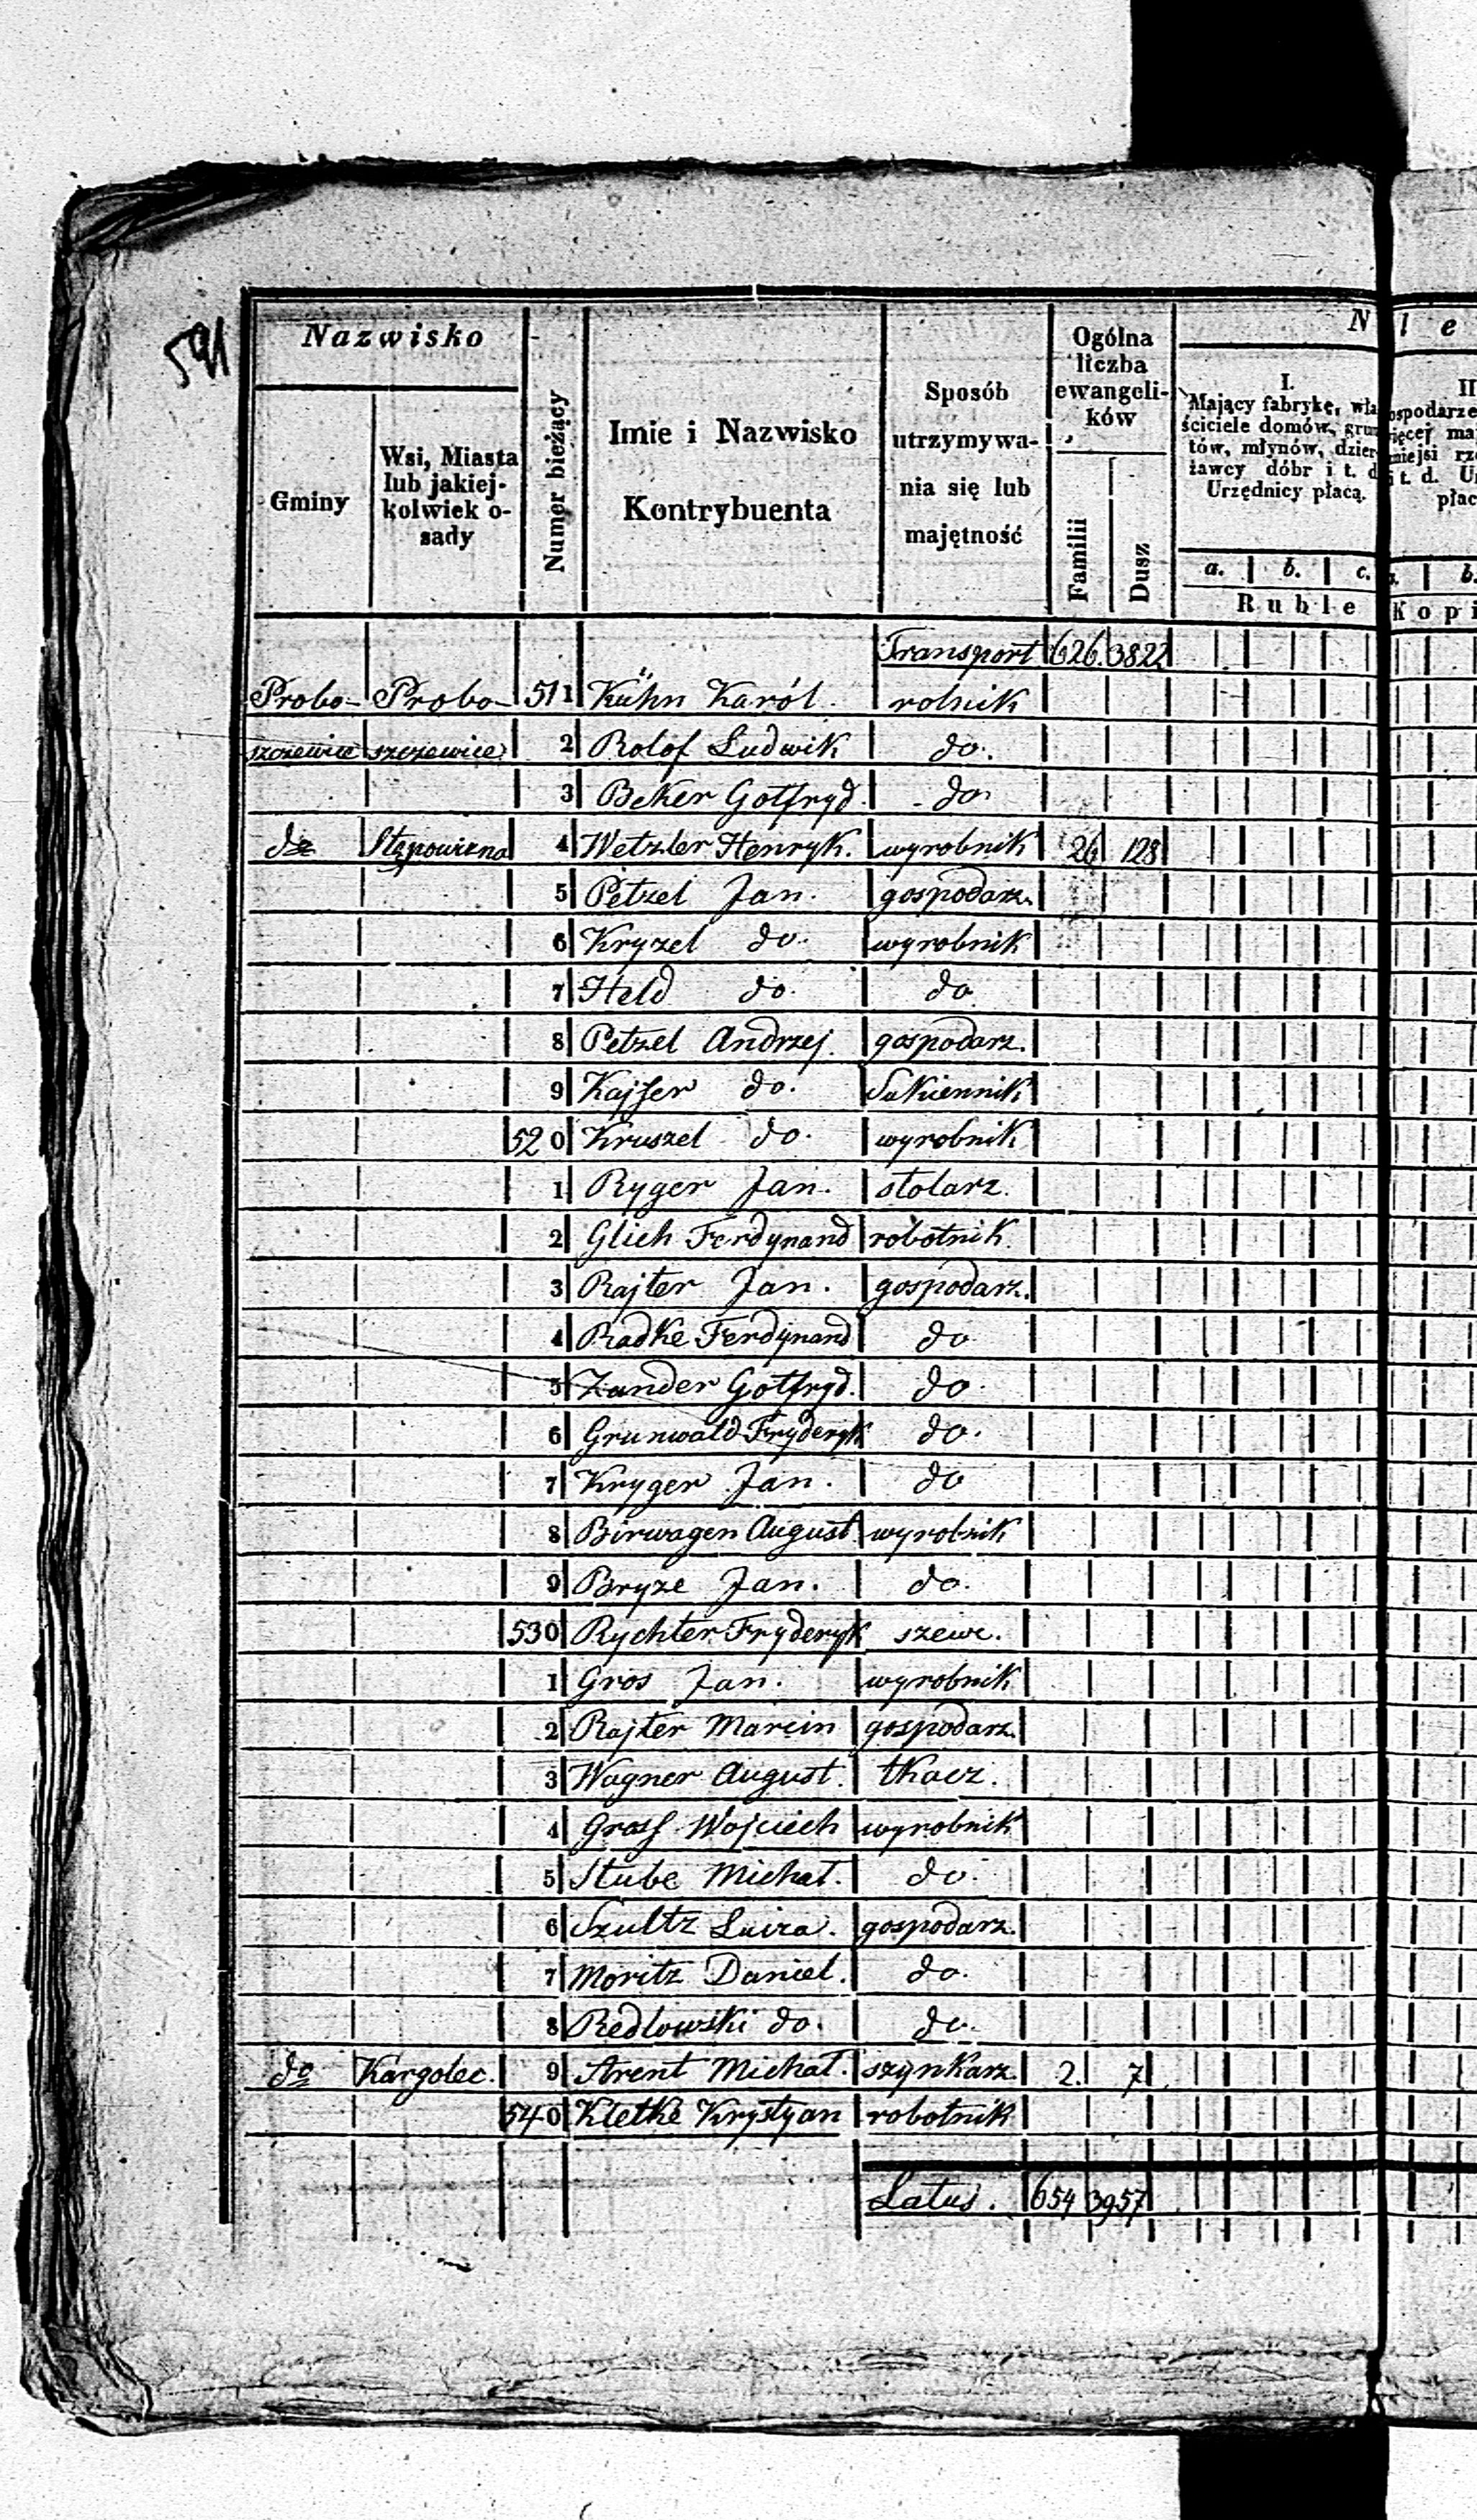 591
Nazwisko
Gminy
Wsi, Miasta lub jakiej-kolwiek o-sady
Numer bieżący
Imie i Nazwisko
Kontrybuenta
Sposób utrzymywa-nia się lub majętność
Ogólna liczba ewangeli-ków
Familii
Dusz
N
I.
Mający fabrykę, wła
ściciele domów, grun
tów, młynów, dzier
żawcy dóbr i t. d.
Urzędnicy płacą.
a. b. c.
Ruble
l e
II
ospodarze
ięcej ma
niejsi rz
i t. d. U
płac
b.
Kopi
Transport 626. 3822
Probo- Probo- 511 Kühn Karól. rolnik
szczewice szczewice 2 Rolof Ludwik do.
3 Beker Gotfryd. do
do Stępowizna 4 Wetzler Henryk. wyrobnik 26 128
5 Petzel Jan. gospodarz.
6 Kryzel do. wyrobnik
7 Held do. do
8 Petzel Andrzej. gospodarz.
9 Kajser do. Sukiennik
520 Kruszel do. wyrobnik
1 Ryger Jan. stolarz.
2 Glich Ferdynand robotnik
3 Rajter Jan. gospodarz.
4 Radke Ferdynand do
5 Zander Gotfryd. do.
6 Grunwald Fryderyk do.
7 Kryger Jan. do
8 Birwagen August wyrobnik
9 Bryze Jan. do.
530 Rychter Fryderyk szewc.
1 Gros Jan. wyrobnik
2 Rajter Marcin gospodarz.
3 Wagner August. tkacz.
4 Gross Wojciech wyrobnik
5 Stube Michał. do.
6 Szultz Luiza. gospodarz.
7 Moritz Daniel. do.
8 Redlowski do. do.
do Kargolec. 9 Arent Michał. szynkarz. 2. 7
540 Kletke Krystyan robotnik
Latus. 654 3957